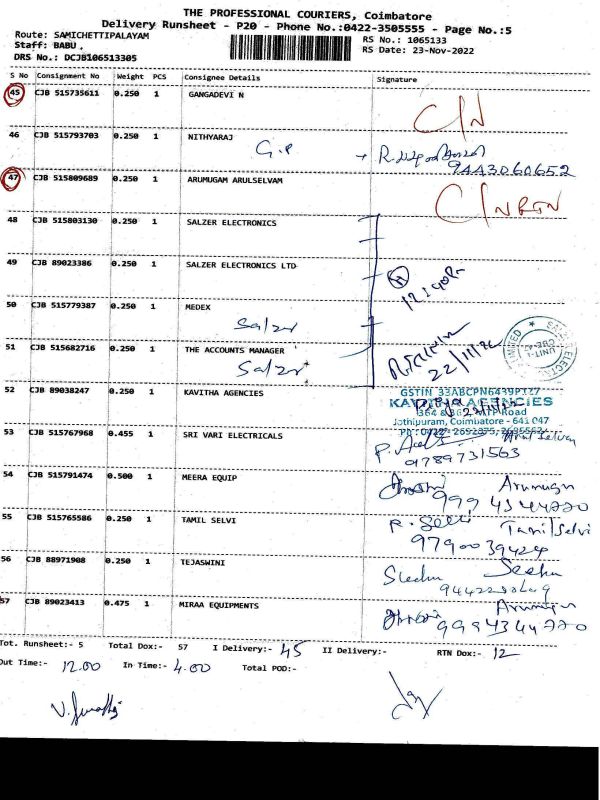 THE PROFESSIONAL COURIERS, Coimbatore
Delivery Runsheet - P20 - Phone No.:0422-3505555 - Page No.:5
Route: SAMICHETTIPALAYAM RS No.: 1065133
Staff: BABU , RS Date: 23-Nov-2022
DRS No.: DCJB106513305
S No Consignment No Weight PCS Consignee Details Signature
45 CJB 515735611 0.250 1 GANGADEVI N C/N
46 CJB 515793703 0.250 1 NITHYARAJ G.P
47 CJB 515809689 0.250 1 ARUMUGAM ARULSELVAM
48 CJB 515803130 0.250 1 SALZER ELECTRONICS
49 CJB 89023386 0.250 1 SALZER ELECTRONICS LTD
50 CJB 515779387 0.250 1 MEDEX
Salzer
51 CJB 515682716 0.250 1 THE ACCOUNTS MANAGER
Salzer
52 CJB 89038247 0.250 1 KAVITHA AGENCIES
KAVITHA AGENCIES
Jothipuram, Coimbatore - 641 047
53 CJB 515767968 0.455 1 SRI VARI ELECTRICALS
9789731563
54 CJB 515791474 0.500 1 MEERA EQUIP Arumugn
9994344770
55 CJB 515765586 0.250 1 TAMIL SELVI Tamil Selvi
9790039424
56 CJB 88971908 0.250 1 TEJASWINI
57 CJB 89023413 0.475 1 MIRAA EQUIPMENTS Arumugn
9994344770
Tot. Runsheet:- 5 Total Dox:- 57 I Delivery:- 45 II Delivery:- RTN Dox:- 12
Out Time:- 12.00 In Time:- 4.00 Total POD:-